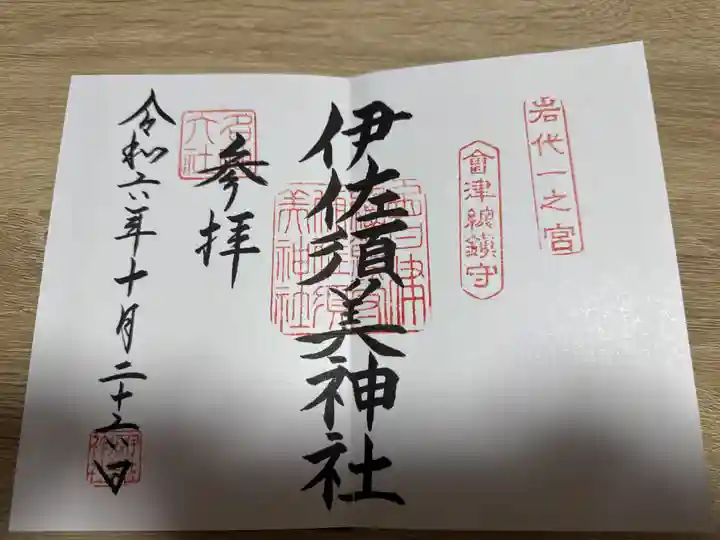 岩代一之宮
會津總鎮守
伊佐須美神社
參拝
名大社
令和六年十月二十六日